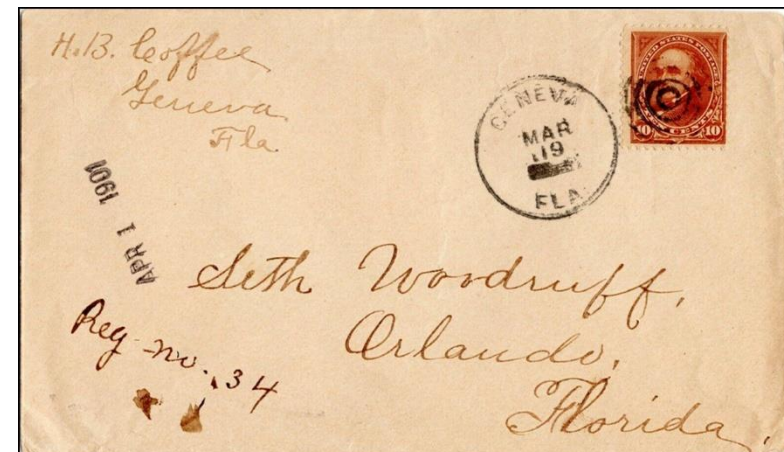 H.B. Coffee
Geneva
Fla.
GENEVA
MAR
19
FLA.
UNITED STATES POSTAGE
10 TEN CENTS 10
APR 1 1901
Seth Woodruff,
Orlando,
Florida.
Reg. no. 34